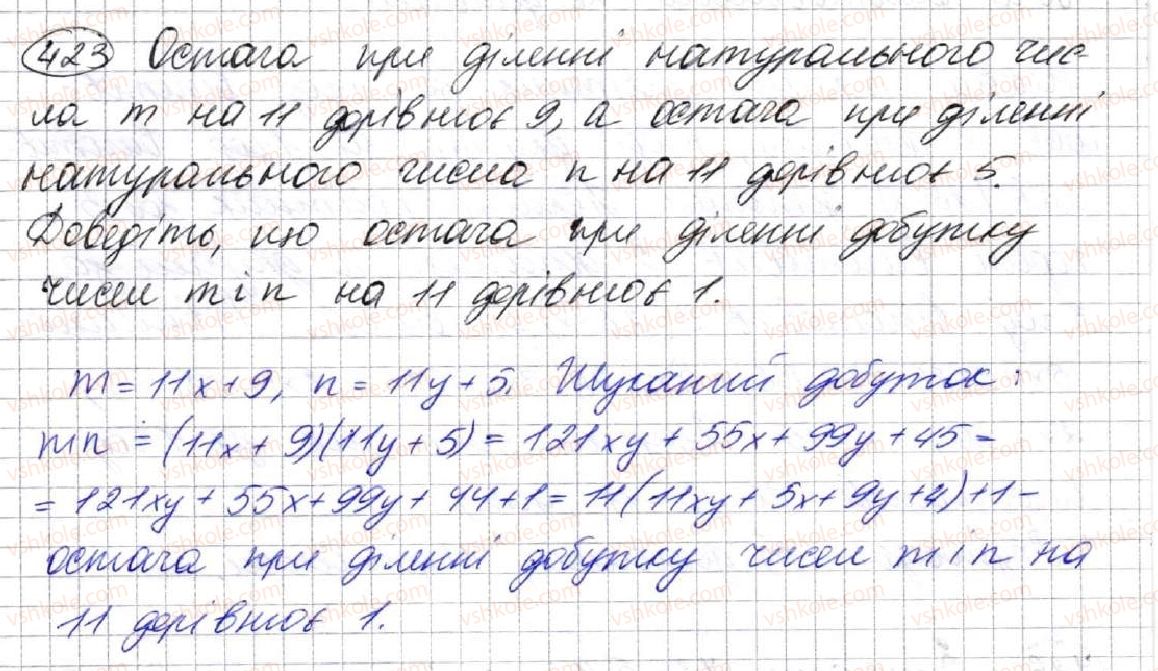 423 Остача при діленні натурального чис-
ла m на 11 дорівнює 9, а остача при діленні
натурального числа n на 11 дорівнює 5.
Доведіть, що остача при діленні добутку
чисел m і n на 11 дорівнює 1.
m = 11x + 9, n = 11y + 5. Шуканий добуток:
mn = (11x + 9)(11y + 5) = 121xy + 55x + 99y + 45 =
= 121xy + 55x + 99y + 44 + 1 = 11(11xy + 5x + 9y + 4) + 1 –
остача при діленні добутку чисел m і n на
11 дорівнює 1.